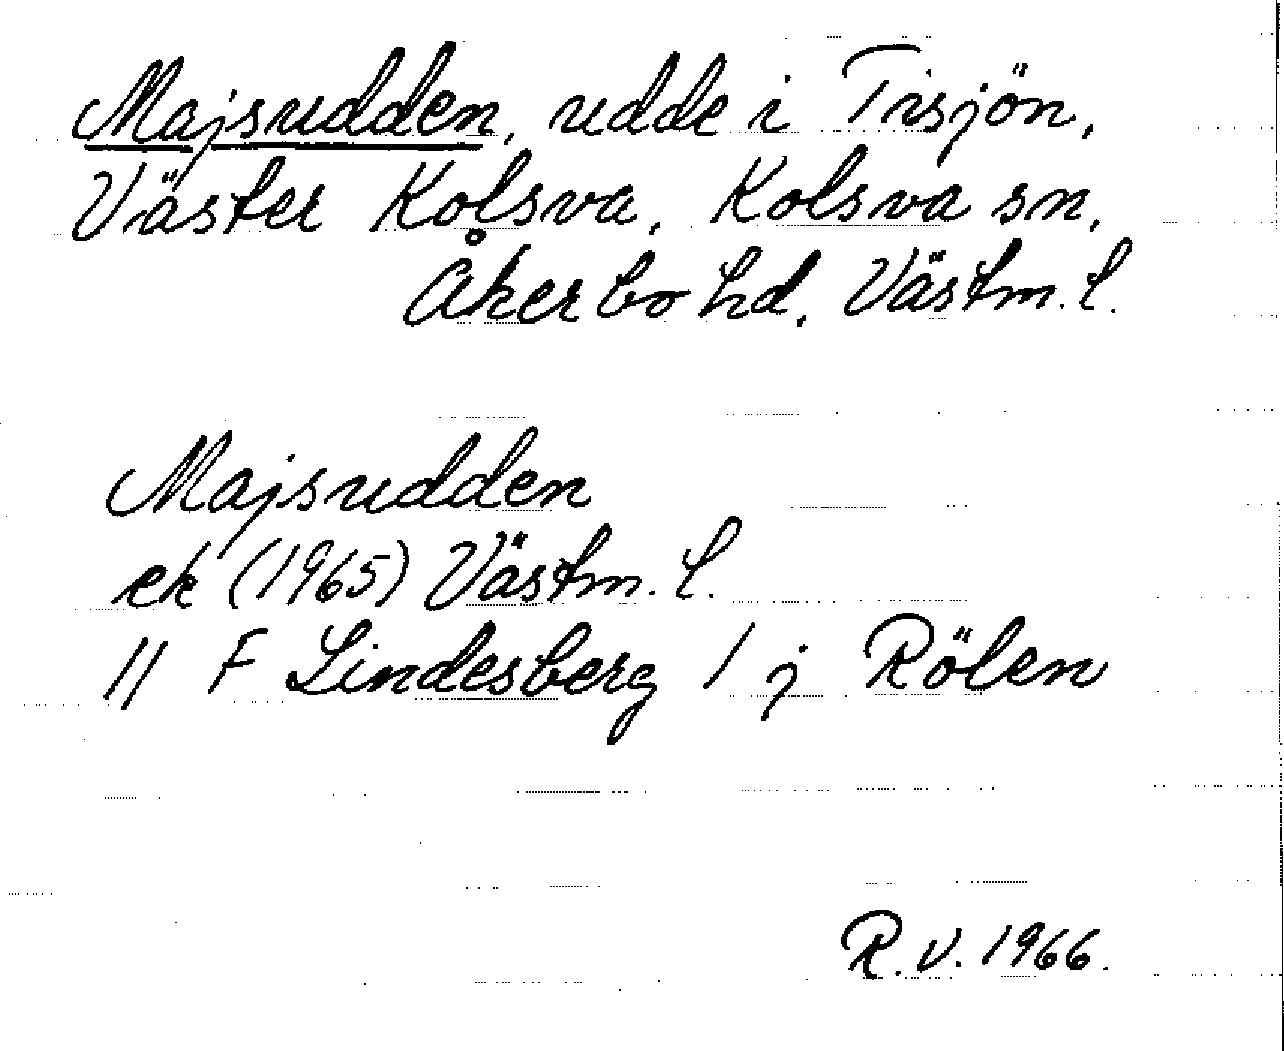 Majsudden, udde i Tisjön,
Väster Kolsva, Kolsva sn,
Åkerbo hd, Västm. l.
Majsudden
ek (1965) Västm. l.
11 F Lindesberg 1 j Rölen
R.V. 1966.